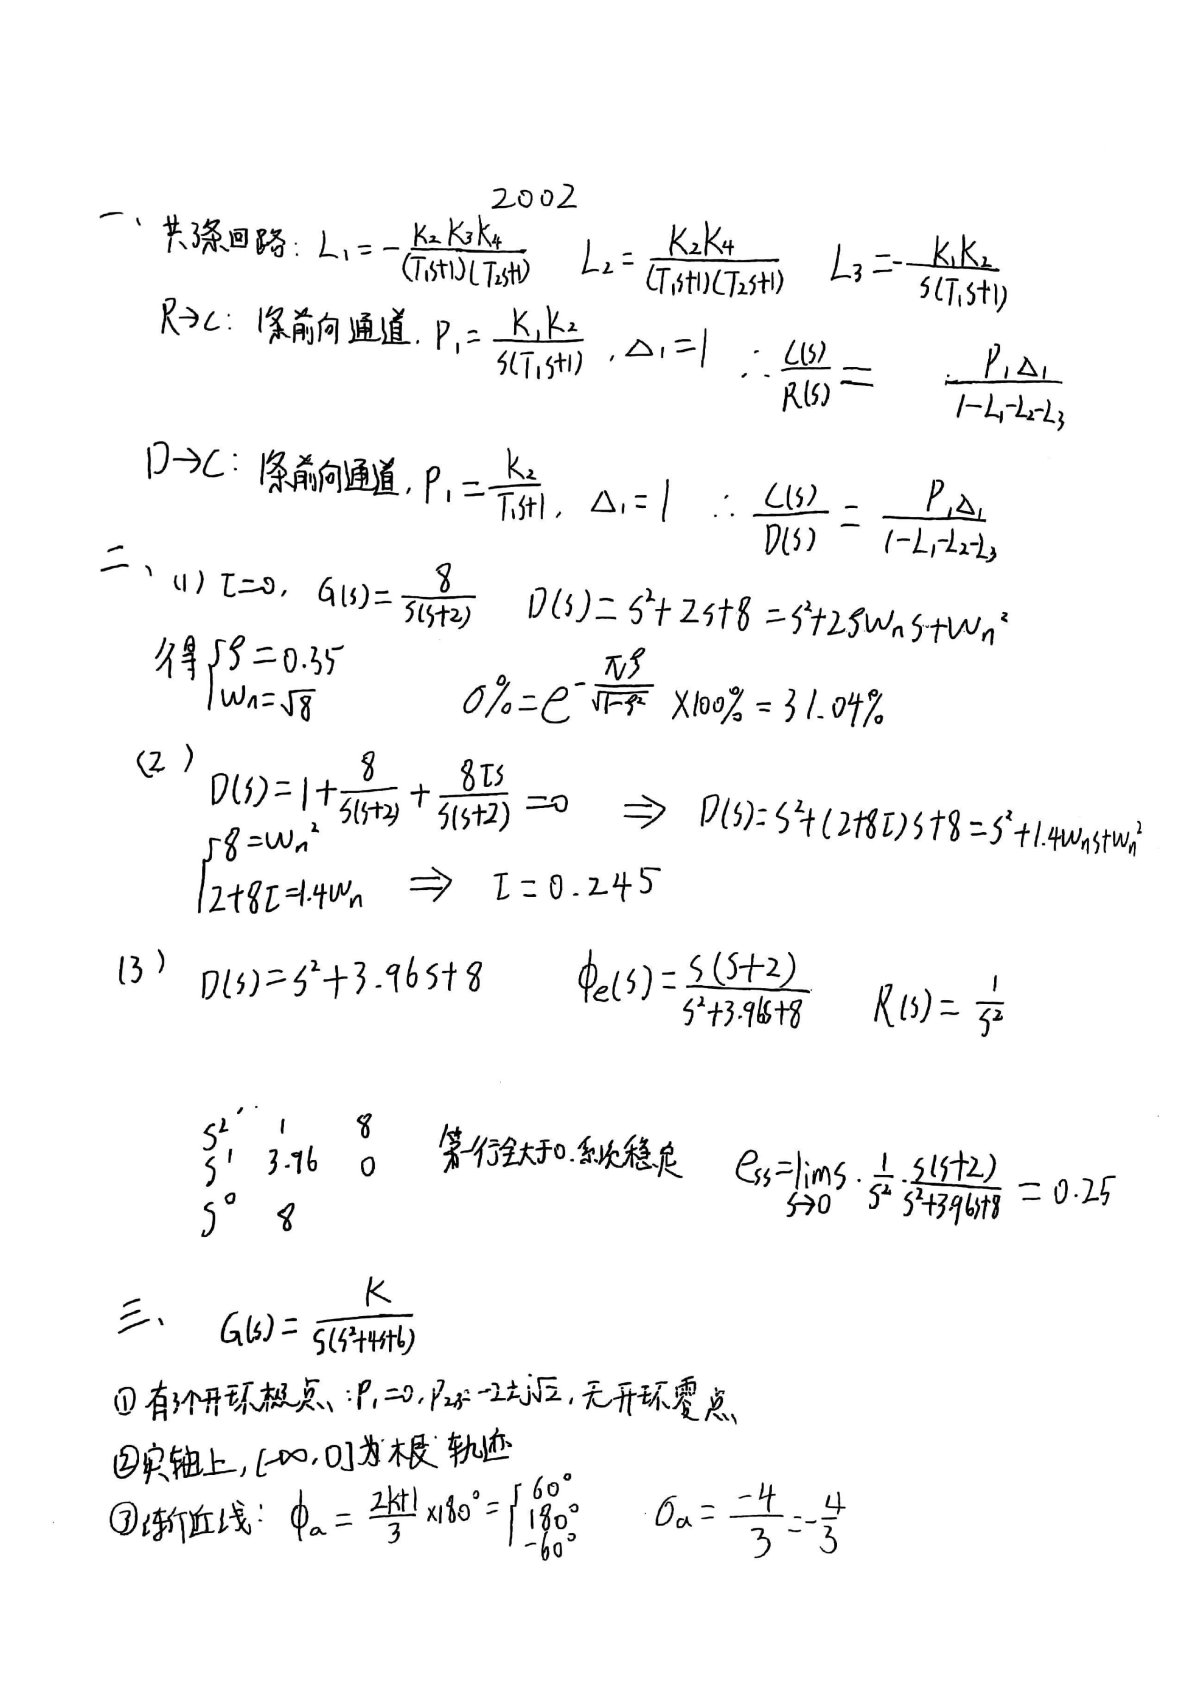 2002
一、共3条回路: L₁ = -K₂K₃K₄/((T₁s+1)(T₂s+1))  L₂ = K₂K₄/((T₁s+1)(T₂s+1))  L₃ = -K₁K₂/(s(T₁s+1))
R→C: 1条前向通道. P₁ = K₁K₂/(s(T₁s+1)), Δ₁=1 ∴ C(s)/R(s) = P₁Δ₁/(1-L₁-L₂-L₃)
D→C: 1条前向通道, P₁ = K₂/(T₁s+1), Δ₁=1 ∴ C(s)/D(s) = P₁Δ₁/(1-L₁-L₂-L₃)
二、(1) τ=0, G(s) = 8/(s(s+2))  D(s) = s²+2s+8 = s²+2ζωₙs+ωₙ²
得 { ζ = 0.35
ωₙ = √8  σ% = e^(-πζ/√(1-ζ²)) ×100% = 31.04%
(2) D(s) = 1 + 8/(s(s+2)) + 8τs/(s(s+2)) = 0 ⇒ D(s) = s²+(2+8τ)s+8 = s²+1.4ωₙs+ωₙ²
{ 8 = ωₙ²
2+8τ = 1.4ωₙ ⇒ τ = 0.245
(3) D(s) = s²+3.96s+8  ϕe(s) = s(s+2)/(s²+3.96s+8)  R(s) = 1/s²
s² 1 8
s¹ 3.96 0  第一行全大于0.系统稳定  ess = lim s→0 s · 1/s² · s(s+2)/(s²+3.96s+8) = 0.25
s⁰ 8
三、G(s) = K/(s(s²+4s+6))
① 有3个开环极点、: P₁=0, P₂,₃=-2±j√2, 无开环零点
② 实轴上, [-∞, 0]为根轨迹
③ 渐近线: ϕa = (2k+1)/3 ×180° = { 60° 180° -60°  σa = -4/3 = -4/3